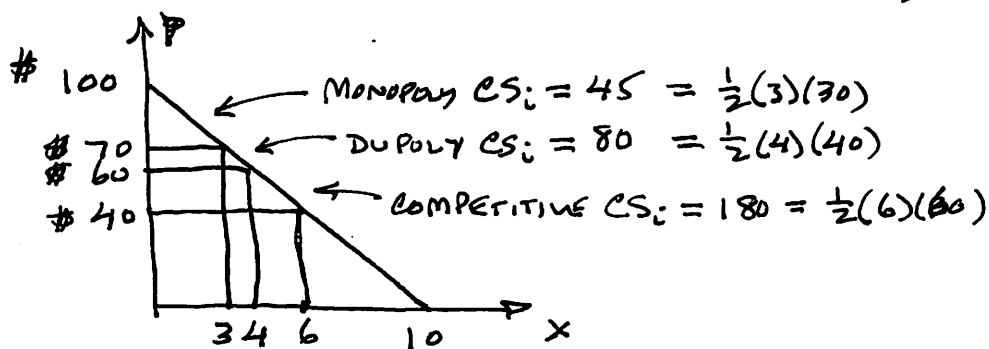 P
# 100
MONOPOLY CSᵢ = 45 = ½(3)(30)
# 70
DUPOLY CSᵢ = 80 = ½(4)(40)
# 60
# 40
COMPETITIVE CSᵢ = 180 = ½(6)(60)
3 4 6 10 X